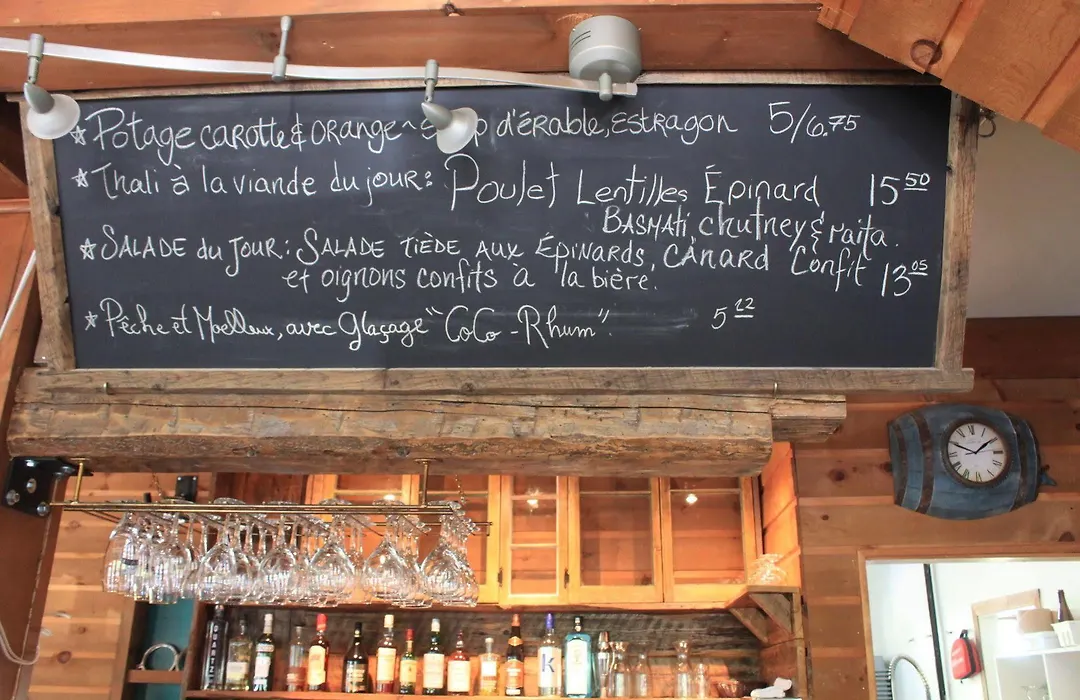 ★ Potage carotte & orange ~ d'érable, estragon 5/6.75
★ Thali à la viande du jour: Poulet Lentilles Épinard 15 50
Basmati, chutney & raita.
★ Salade du jour: Salade tiède aux épinards, canard confit 13 05
et oignons confits à la bière.
★ Pêche et Moelleux, avec glaçage "CoCo-Rhum" 5 22